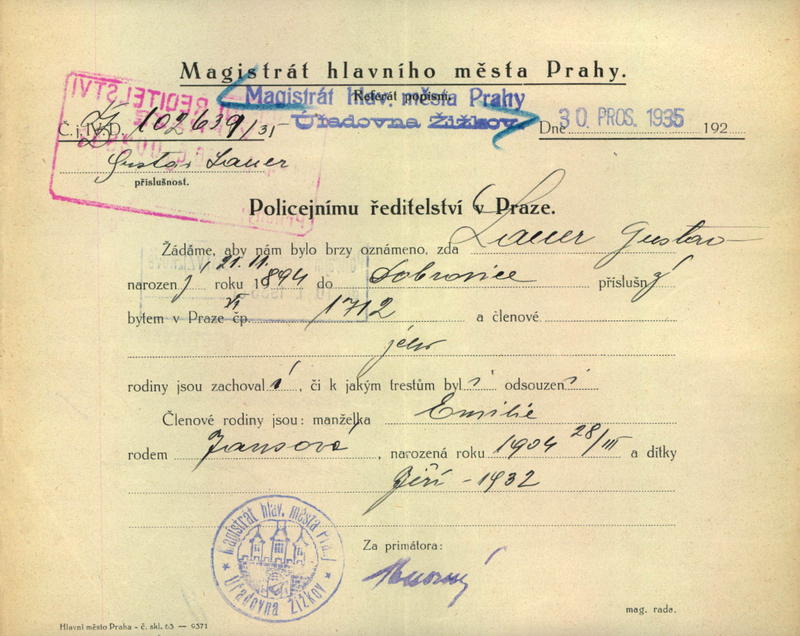 Magistrát hlavního města Prahy.
Referát popisní.
Magistrát hlav. města Prahy
Úřadovna Žižkov.
ŘEDITELSTVÍ
Č. j. IV-D. 102639/35
Dne 30 PROS. 1935 192
Gustav Lauer
příslušnost.
Policejnímu ředitelství v Praze.
Žádáme, aby nám bylo brzy oznámeno, zda Lauer Gustav
narozený 21.11. roku 1894 do Dobrovice příslušný
bytem v Praze čp. 1712 a členové
jeho
rodiny jsou zachovalí, či k jakým trestům byli odsouzeni
Členové rodiny jsou: manželka Emilie
rodem Jansová, narozená roku 1904 28/III a dítky
Jiří - 1932
Magistrát hlav. města Prahy
Úřadovna Žižkov
Za primátora:
mag. rada.
Hlavní město Praha - č. skl. 63 — 9371